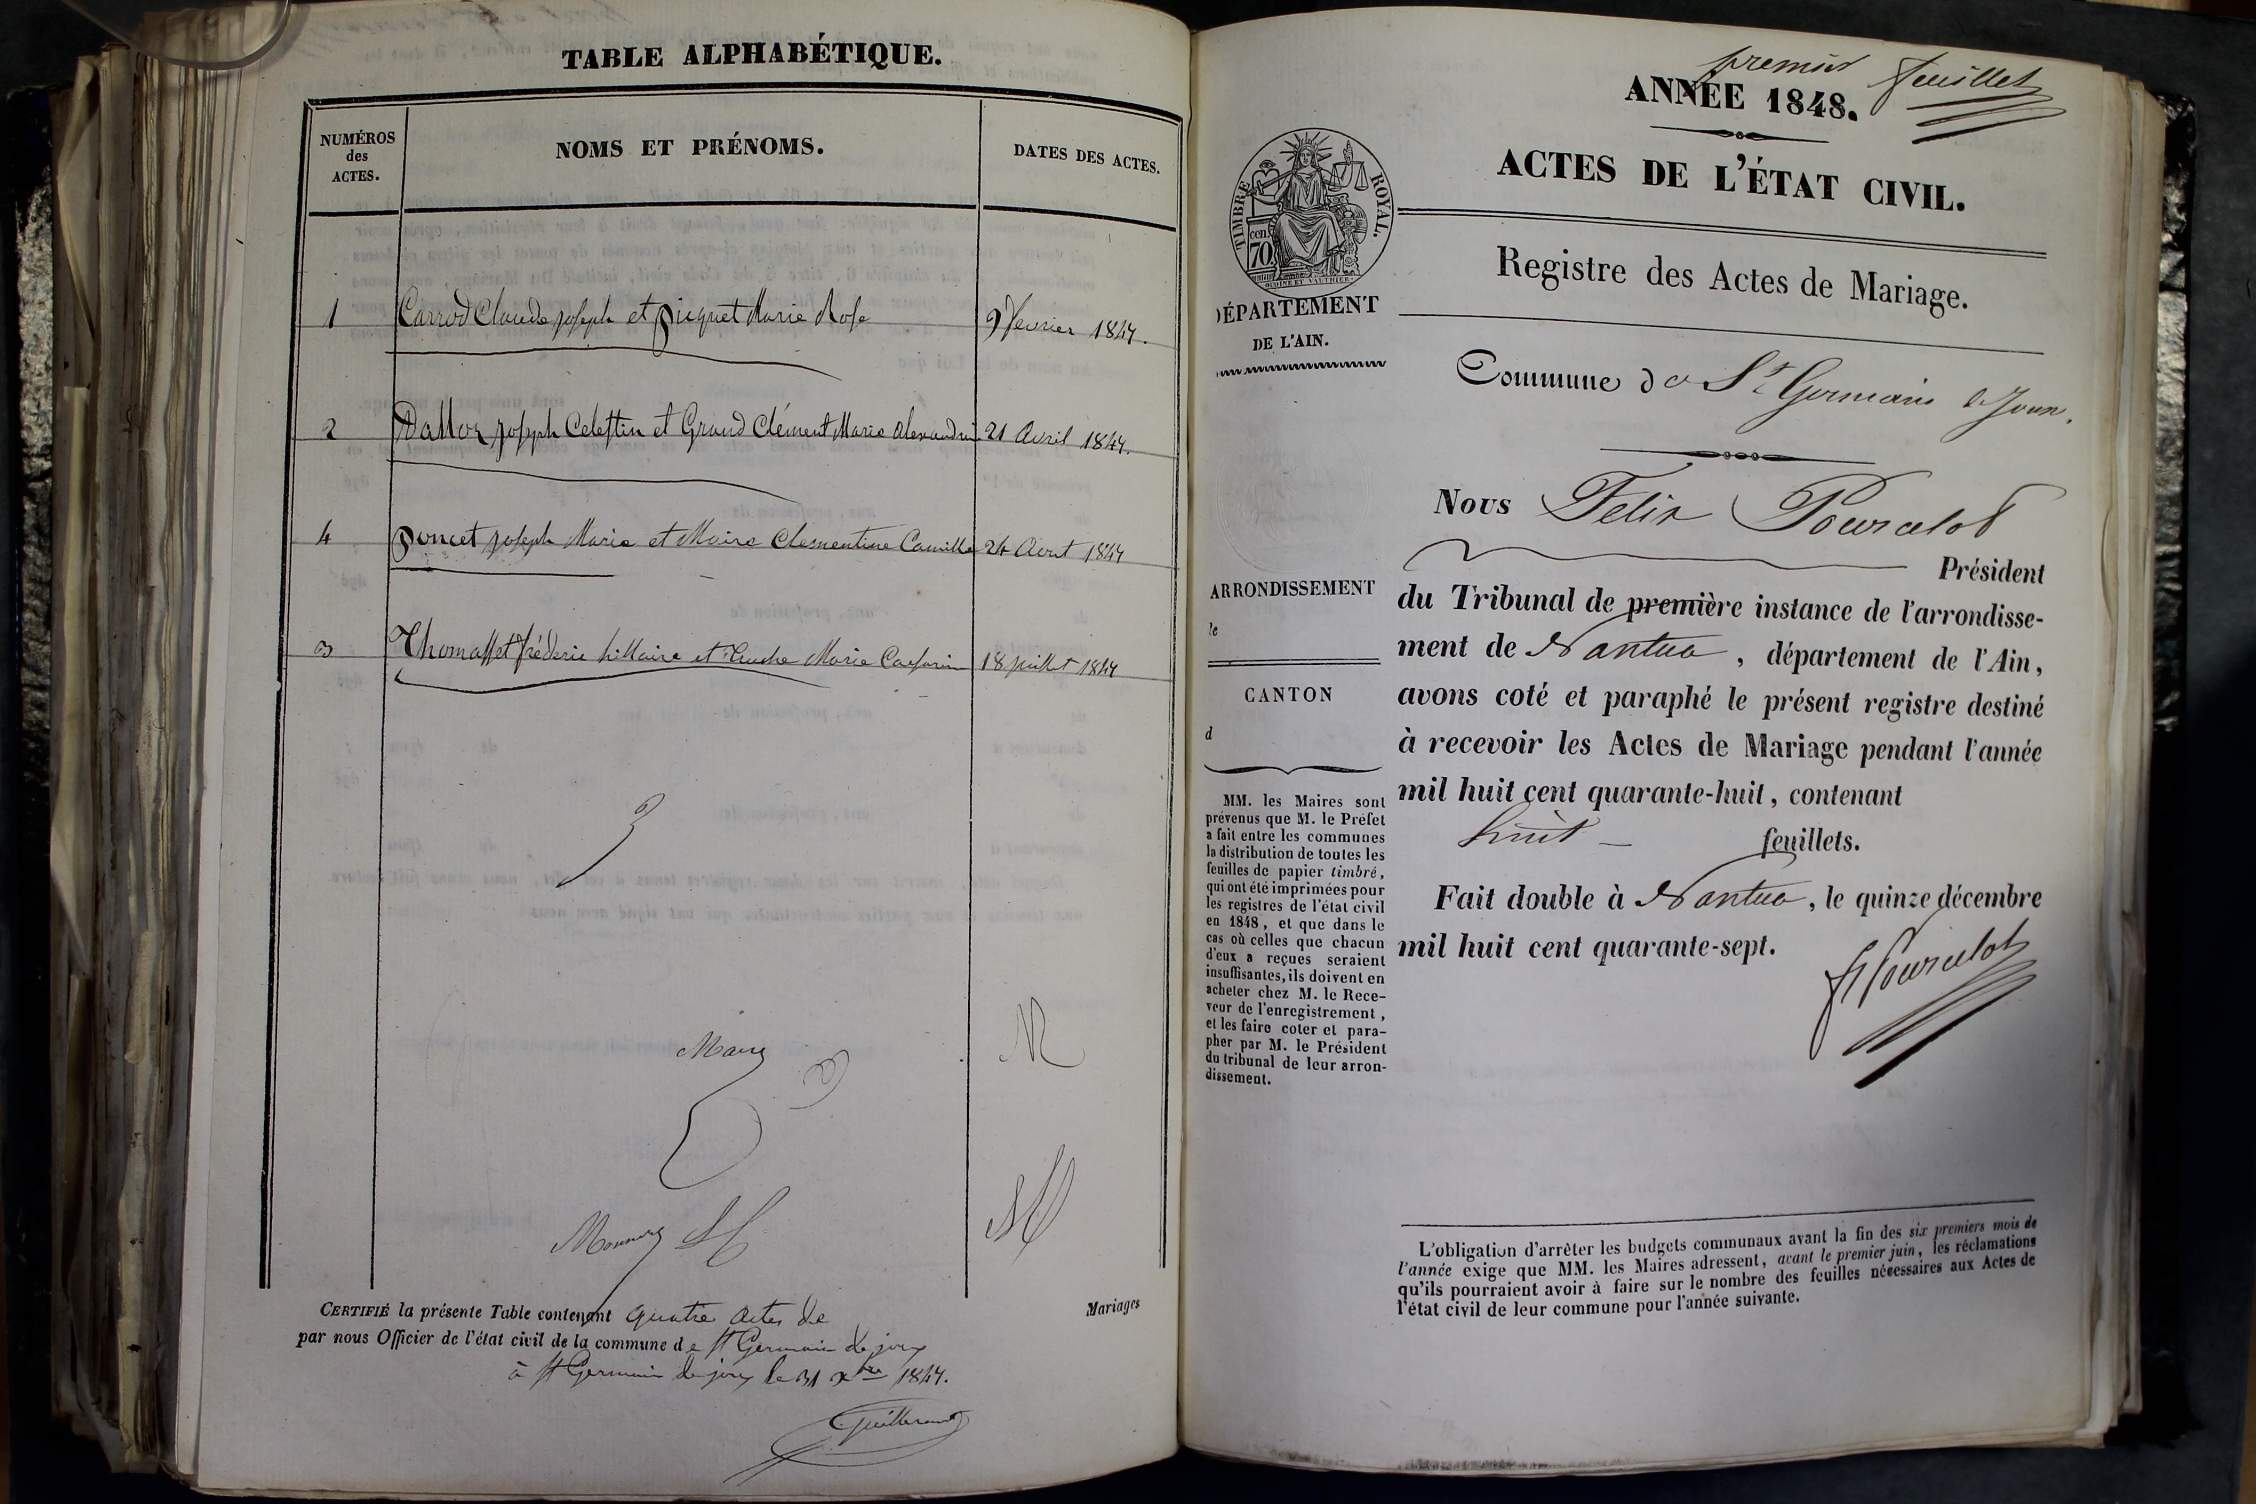 TABLE ALPHABÉTIQUE.
NUMÉROS
des
ACTES.
NOMS ET PRÉNOMS.
DATES DES ACTES.
1 Carrod Claude Joseph et Picquet Marie Rose 9 fevrier 1847.
2 Joseph Celestin et Grand Clément Marie 21 Avril 1847.
4 Poncet Joseph Marie et Maire Clementine Camille 24 Aout 1847
3 Thomasset fréderic hillaire et Marie 18 juillet 1847
CERTIFIÉ la présente Table contenant quatre actes de Mariages
par nous Officier de l'état civil de la commune de St Germain de joux
à St Germain de joux le 31 Xbre 1847.
premier feuillet
ANNÉE 1848.
ACTES DE L'ÉTAT CIVIL.
TIMBRE ROYAL.
cen. 70
Registre des Actes de Mariage.
DÉPARTEMENT
DE L'AIN.
Commune de St Germain de Joux.
Nous Felix Pourcelot
Président
du Tribunal de première instance de l'arrondisse-
ment de Nantua, département de l'Ain,
avons coté et paraphé le présent registre destiné
à recevoir les Actes de Mariage pendant l'année
mil huit cent quarante-huit, contenant
huit feuillets.
Fait double à Nantua, le quinze décembre
mil huit cent quarante-sept.
Pourcelot
ARRONDISSEMENT
de
CANTON
d
MM. les Maires sont
prévenus que M. le Préfet
a fait entre les communes
la distribution de toutes les
feuilles de papier timbré,
qui ont été imprimées pour
les registres de l'état civil
en 1848, et que dans le
cas où celles que chacun
d'eux a reçues seraient
insuffisantes, ils doivent en
acheter chez M. le Rece-
veur de l'enregistrement,
et les faire coter et para-
pher par M. le Président
du tribunal de leur arron-
dissement.
L'obligation d'arrêter les budgets communaux avant la fin des six premiers mois de
l'année exige que MM. les Maires adressent, avant le premier juin, les réclamations
qu'ils pourraient avoir à faire sur le nombre des feuilles nécessaires aux Actes de
l'état civil de leur commune pour l'année suivante.